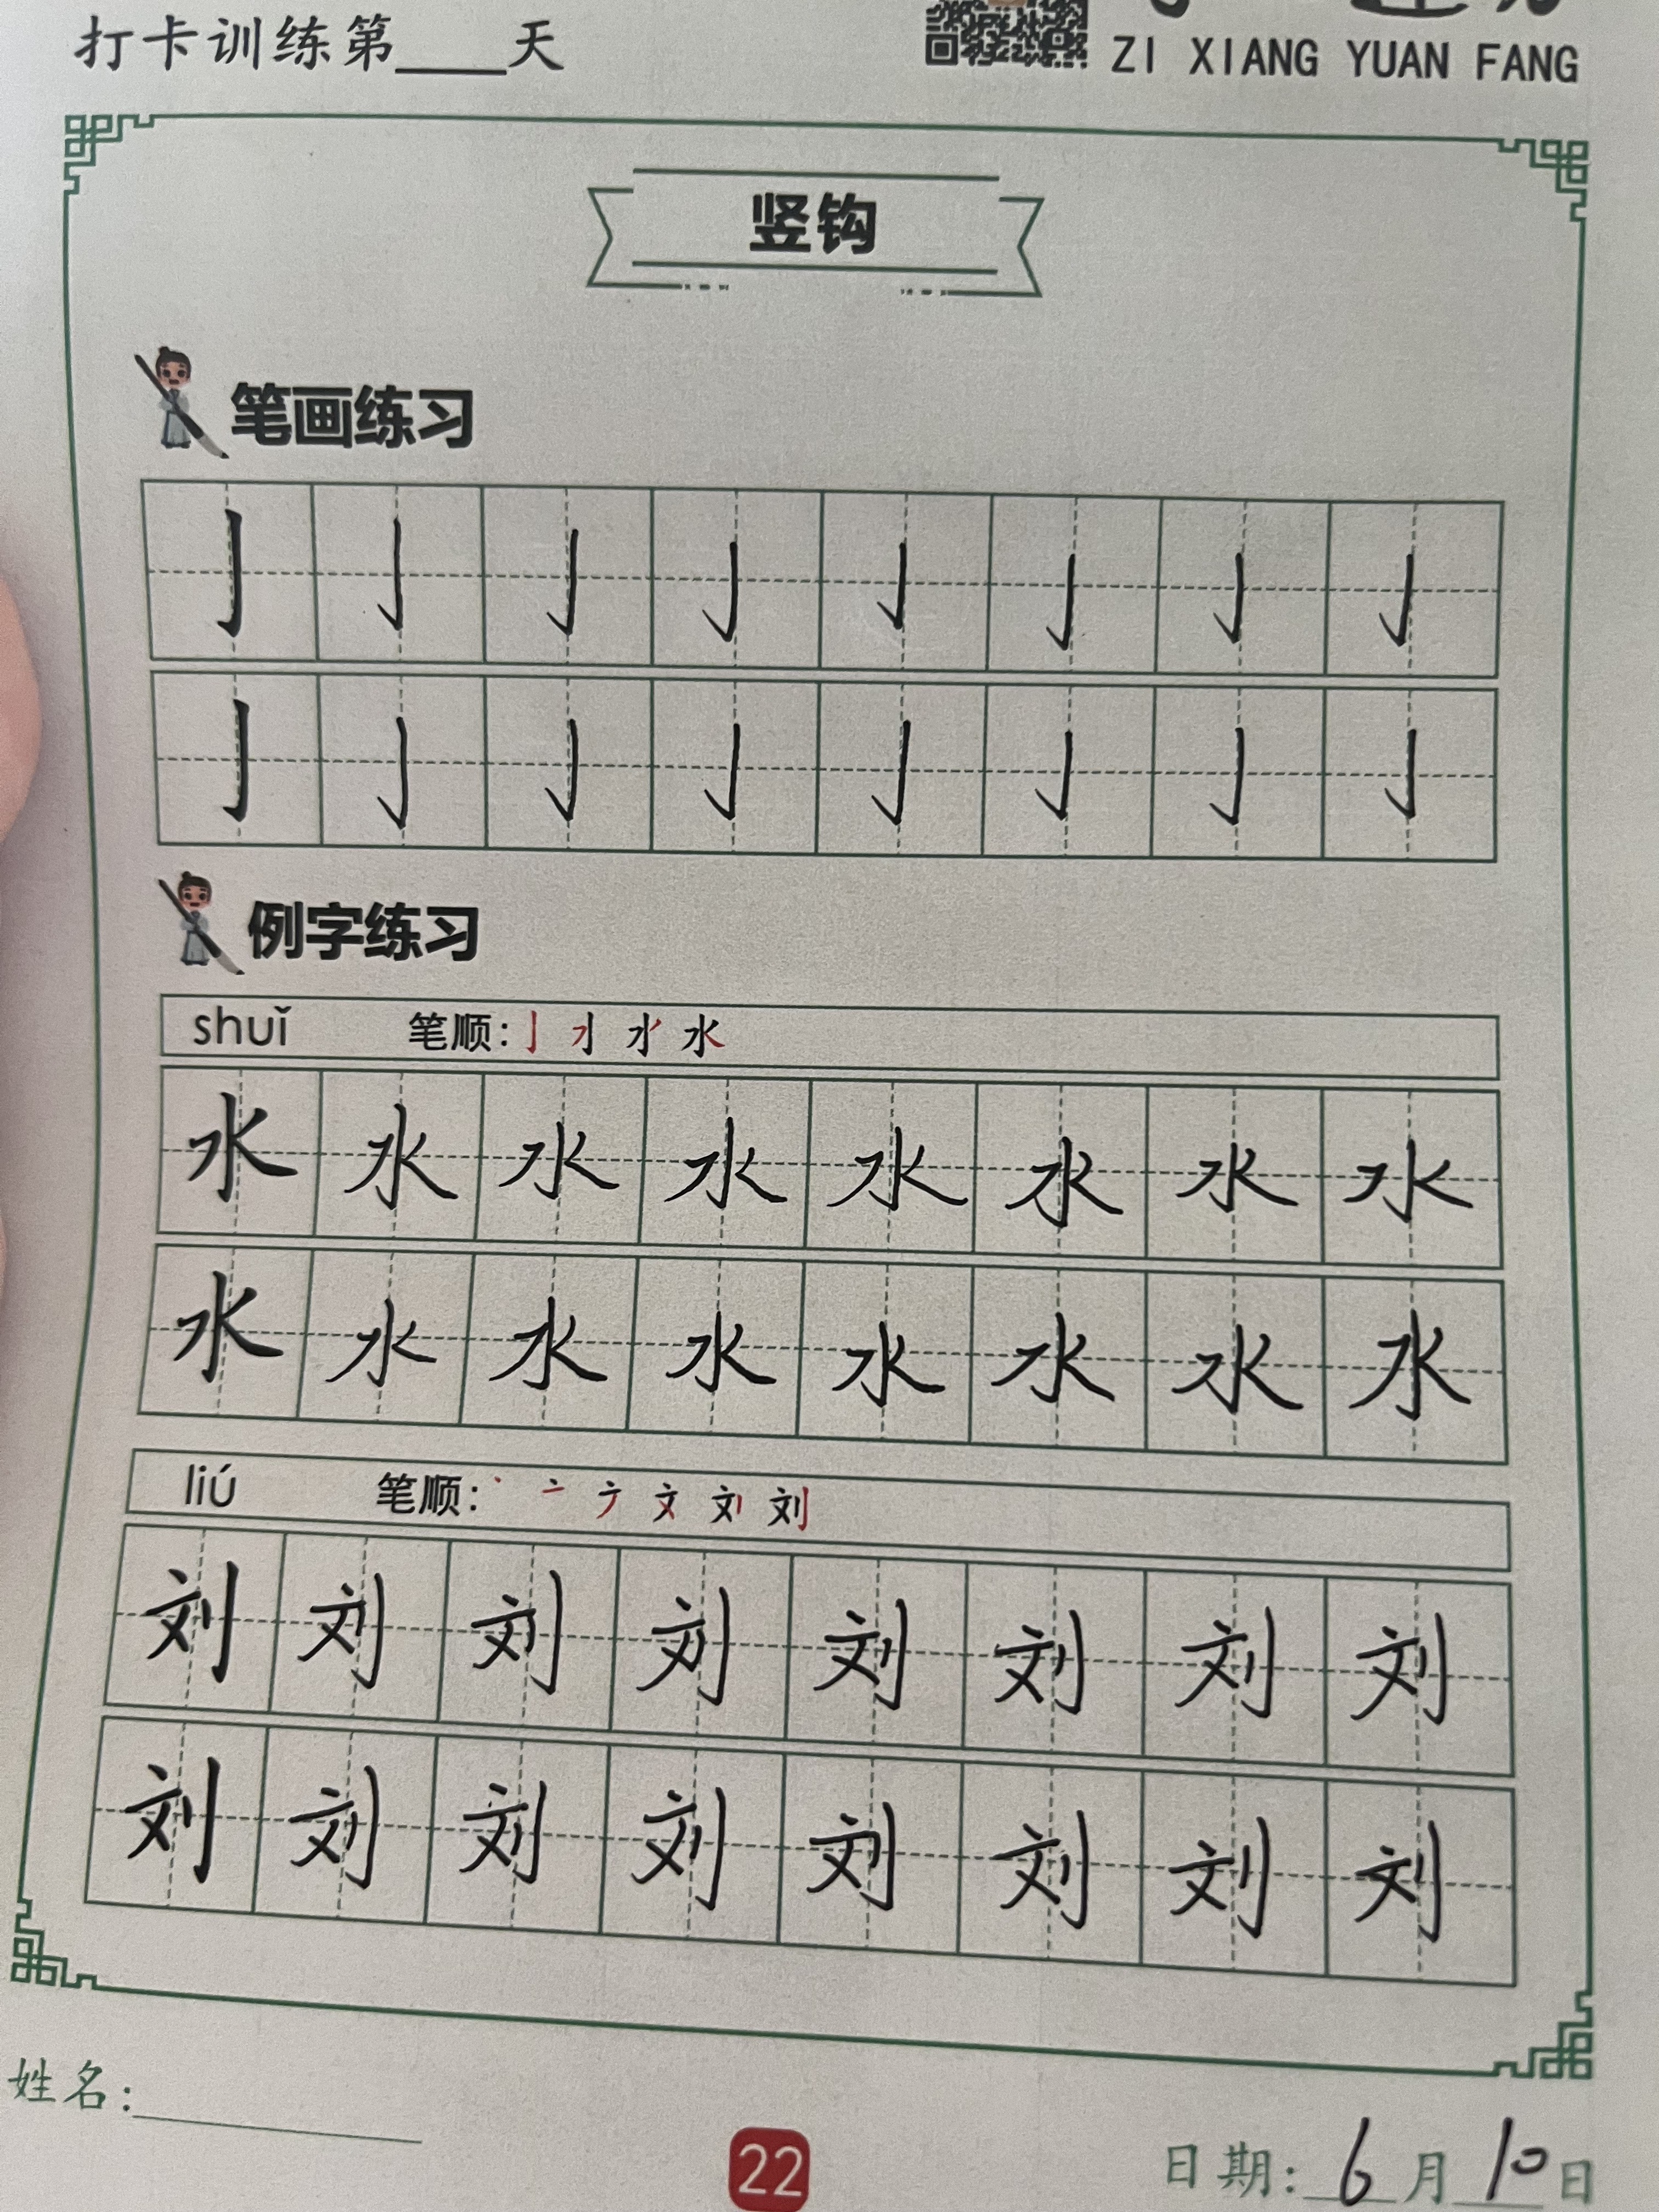 打卡训练第____天
ZI XIANG YUAN FANG
竖钩
笔画练习
亅 亅 亅 亅 亅 亅 亅 亅
亅 亅 亅 亅 亅 亅 亅 亅
例字练习
shuǐ 笔顺: 水
水 水 水 水 水 水 水 水
水 水 水 水 水 水 水 水
liú 笔顺: 丶 亠 文 刘
刘 刘 刘 刘 刘 刘 刘 刘
刘 刘 刘 刘 刘 刘 刘 刘
姓名:
22
日期: 6月10日